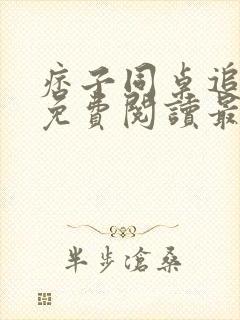 痞子同桌追
免費閱讀最
半步滄桑